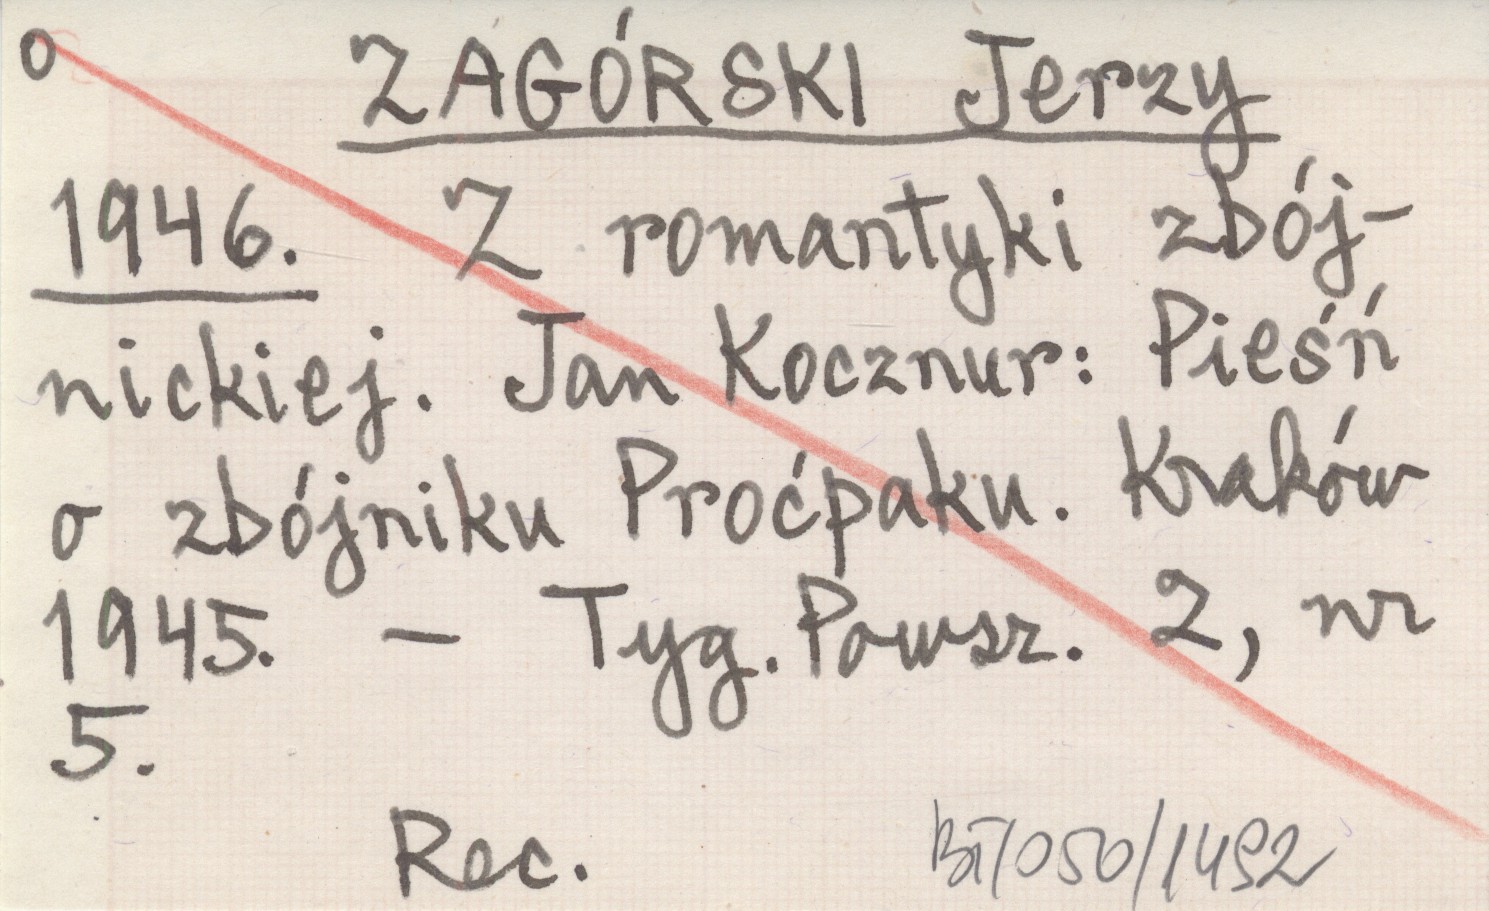 o ZAGÓRSKI Jerzy
1946. Z romantyki zbój-
nickiej. Jan Kocznur: Pieśń
o zbójniku Proćpaku. Kraków
1945. – Tyg. Powsz. 2, nr
5.
Rec. BT/050/1492